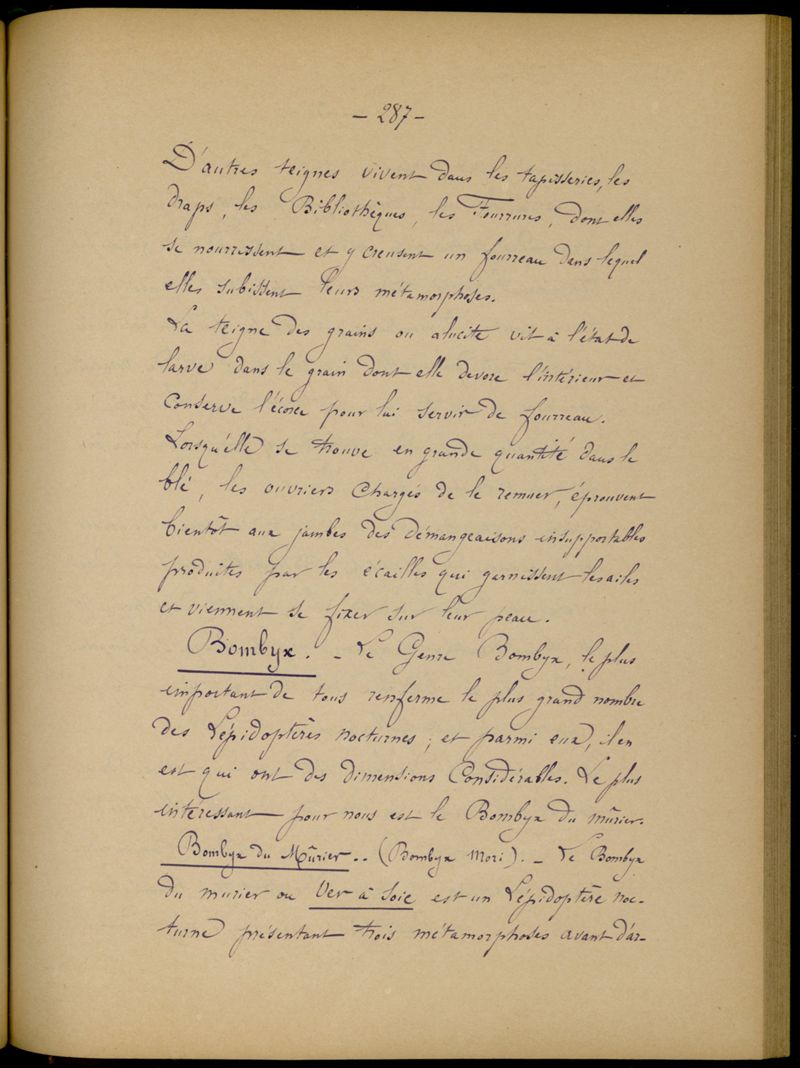 - 287 -
D'autres teignes vivent dans les tapisseries, les
draps, les Bibliothèques, les Fourrures, dont elles
se nourrissent et y creusent un fourreau dans lequel
elles subissent leurs métamorphoses.
La teigne des grains ou alucite vit à l'état de
larve dans le grain dont elle dévore l'intérieur et
conserve l'écorce pour lui servir de fourreau.
Lorsqu'elle se trouve en grande quantité dans le
blé, les ouvriers chargés de le remuer, éprouvent
bientôt aux jambes des démangeaisons insupportables
produites par les écailles qui garnissent les ailes
et viennent se fixer sur leur peau.
Bombyx. - Le Genre Bombyx, le plus
important de tous renferme le plus grand nombre
des Lépidoptères nocturnes ; et parmi eux, il en
est qui ont des dimensions considérables. Le plus
intéressant pour nous est le Bombyx du mûrier.
Bombyx du Mûrier.. (Bombyx Mori). - Le Bombyx
du murier ou Ver à Soie est un Lépidoptère noc-
turne présentant trois métamorphoses avant d'ar-